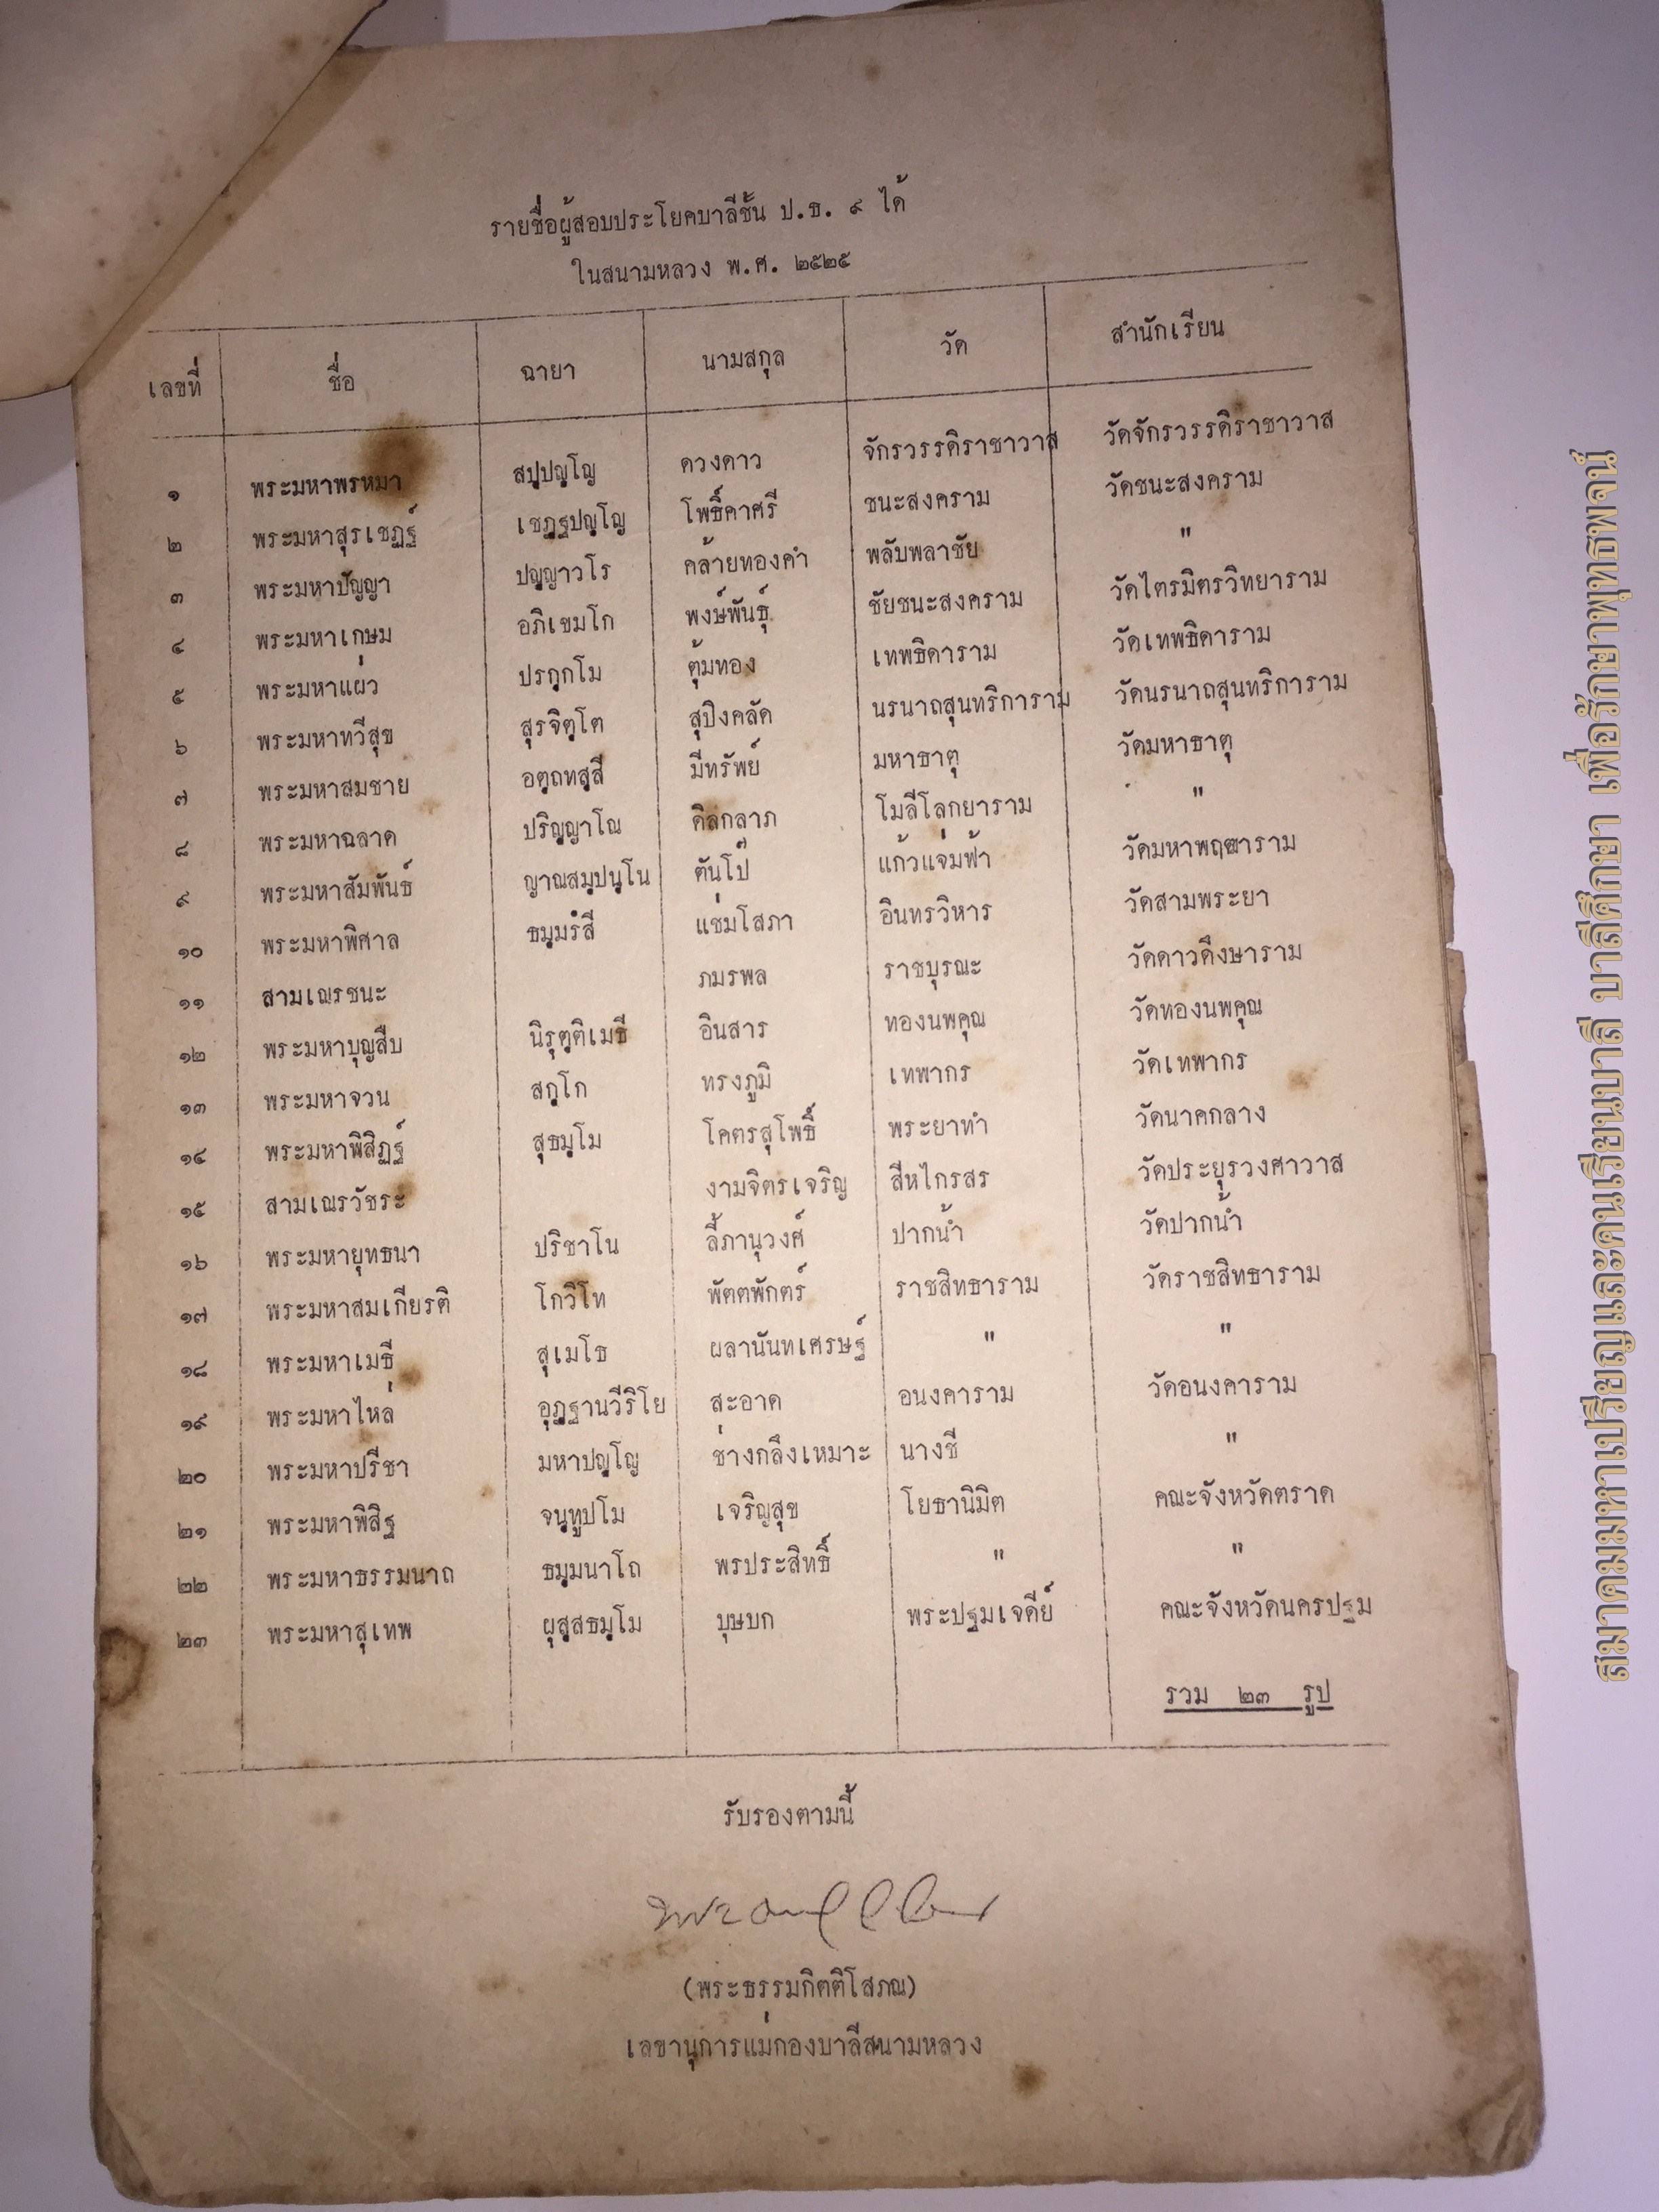 รายชื่อผู้สอบประโยคบาลีชั้น ป.ธ. ๙ ได้
ในสนามหลวง พ.ศ. ๒๕๒๕
เลขที่ ชื่อ ฉายา นามสกุล วัด สำนักเรียน
๑ พระมหาพรหมา สปฺปญฺโญ ดวงดาว จักรวรรดิราชาวาส วัดจักรวรรดิราชาวาส
๒ พระมหาสุรเชฏฐ์ เชฏฺฐปญฺโญ โพธิ์คาศรี ชนะสงคราม วัดชนะสงคราม
๓ พระมหาปัญญา ปญฺญาวโร คล้ายทองคำ พลับพลาชัย "
๔ พระมหาเกษม อภิเขมโก พงษ์พันธุ์ ชัยชนะสงคราม วัดไตรมิตรวิทยาราม
๕ พระมหาแผ่ว ปรกฺกโม ตุ้มทอง เทพธิดาราม วัดเทพธิดาราม
๖ พระมหาทวีสุข สุรจิตฺโต สุปิงคลัด นรนาถสุนทริการาม วัดนรนาถสุนทริการาม
๗ พระมหาสมชาย อตฺถทสฺสี มีทรัพย์ มหาธาตุ วัดมหาธาตุ
๘ พระมหาฉลาด ปริญฺญาโณ ดิลกลาภ โมลีโลกยาราม "
๙ พระมหาสัมพันธ์ ญาณสมฺปนฺโน ตันโป๊ แก้วแจ่มฟ้า วัดมหาพฤฒาราม
๑๐ พระมหาพิศาล ธมฺมรํสี แช่มโสภา อินทรวิหาร วัดสามพระยา
๑๑ สามเณรชนะ ภมรพล ราชบุรณะ วัดดาวดึงษาราม
๑๒ พระมหาบุญสืบ นิรุตฺติเมธี อินสาร ทองนพคุณ วัดทองนพคุณ
๑๓ พระมหาจวน สกฺโก ทรงภูมิ เทพากร วัดเทพากร
๑๔ พระมหาพิสิฏฐ์ สุธมฺโม โคตรสุโพธิ์ พระยาทำ วัดนาคกลาง
๑๕ สามเณรวัชระ งามจิตรเจริญ สีหไกรสร วัดประยุรวงศาวาส
๑๖ พระมหายุทธนา ปริชาโน ลี้ภานุวงศ์ ปากน้ำ วัดปากน้ำ
๑๗ พระมหาสมเกียรติ โกวิโท พัตตพักตร์ ราชสิทธาราม วัดราชสิทธาราม
๑๘ พระมหาเมธี สุเมโธ ผลานันทเศรษฐ์ " "
๑๙ พระมหาไหล่ อุฏฺฐานวีริโย สะอาด อนงคาราม วัดอนงคาราม
๒๐ พระมหาปรีชา มหาปญฺโญ ช่างกลึงเหมาะ นางชี "
๒๑ พระมหาพิสิฐ จนฺทูปโม เจริญสุข โยธานิมิต คณะจังหวัดตราด
๒๒ พระมหาธรรมนาถ ธมฺมนาโถ พรประสิทธิ์ " "
๒๓ พระมหาสุเทพ ผุสฺสธมฺโม บุษบก พระปฐมเจดีย์ คณะจังหวัดนครปฐม
รวม ๒๓ รูป
รับรองตามนี้
(พระธรรมกิตติโสภณ)
เลขานุการแม่กองบาลีสนามหลวง
สมาคมมหาเปรียญและคนเรียนบาลี บาลีศึกษา เพื่อรักษาพุทธพจน์